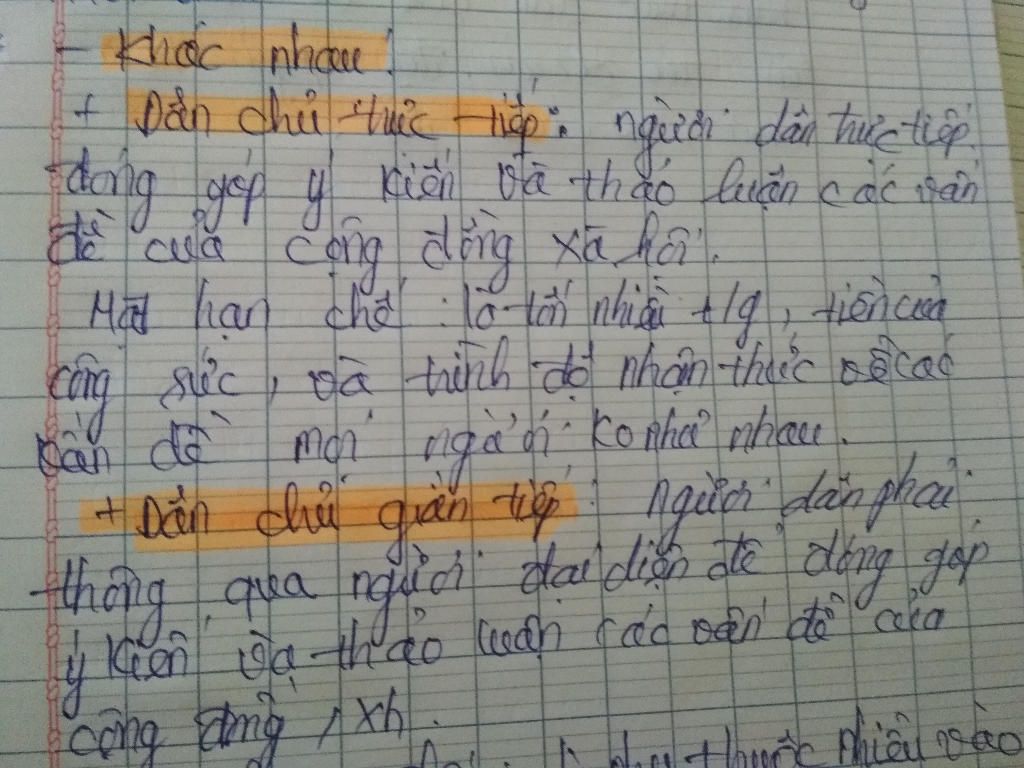 - Khác nhau:
+ Dân chủ trực tiếp: người dân trực tiếp
đóng góp ý kiến và thảo luận các vấn
đề của cộng đồng xã hội.
hạn chế: là tốn nhiều t/g, tiền của
công sức, và trình độ nhận thức về các
vấn đề mọi người ko như nhau.
+ Dân chủ gián tiếp: Người dân phải
thông qua người đại diện để đóng góp
ý kiến và thảo luận các vấn đề của
cộng đồng, xh.
phụ thuộc nhiều vào